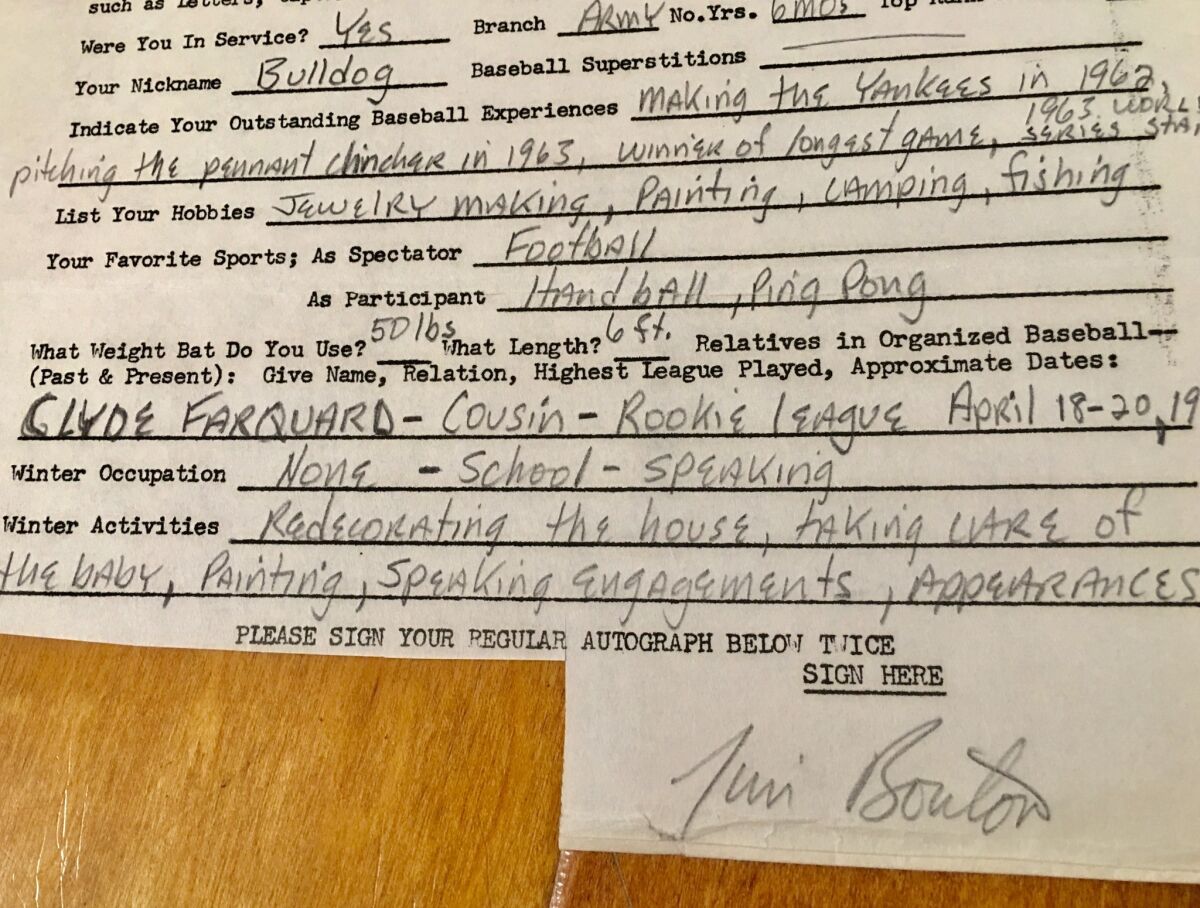 such as Letters,
Were You In Service? Yes Branch ARMY No.Yrs. 6mos Top
Your Nickname Bulldog Baseball Superstitions
Indicate Your Outstanding Baseball Experiences making the Yankees in 1962,
pitching the pennant chincher in 1963, winner of longest game, 1963 WORL SERIES STAR
List Your Hobbies Jewelry making, Painting, camping, fishing
Your Favorite Sports; As Spectator Football
As Participant Handball, Ping Pong
What Weight Bat Do You Use? 50 lbs What Length? 6 ft. Relatives in Organized Baseball--
(Past & Present): Give Name, Relation, Highest League Played, Approximate Dates:
CLYDE FARQUARD - Cousin - Rookie League April 18-20, 19
Winter Occupation None - School - Speaking
Winter Activities Redecorating the house, taking care of
the baby, Painting, Speaking engagements, Appearances
PLEASE SIGN YOUR REGULAR AUTOGRAPH BELOW TWICE
SIGN HERE
Jim Bouton